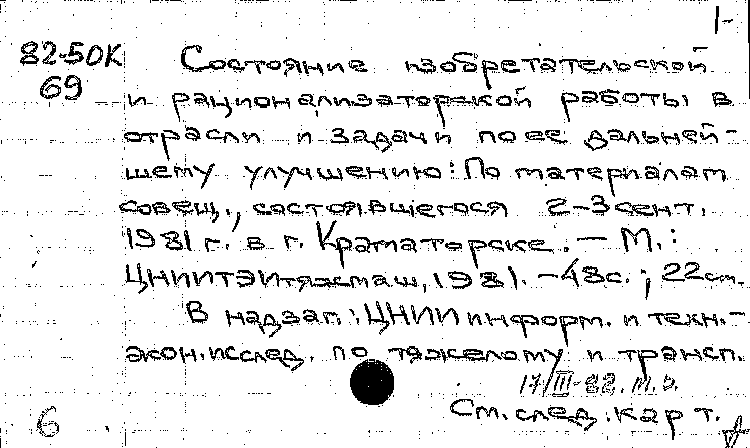 1-
82-50К
69
Состояние изобретательской
и рационализаторской работы в
отрасли и задачи по ее дальней-
шему улучшению: По материалам
совещ., состоявшегося 2-3 сент.
1981 г. в г. Краматорске. — М.:
ЦНИИТЭИтяжмаш, 1981. - 48с.; 22см.
В надзаг.: ЦНИИ информ. и техн.-
экон. исслед. по тяжелому и трансп.
17/III-82. М.З.
См. след. карт.
6